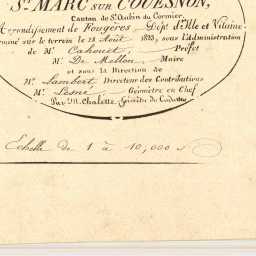 St. MARC sur COUESNON,
Canton de St. Aubin du Cormier,
Arrondissement de Fougères Dépt. d'Ille et Vilaine
miné sur le terrein le 28 Août 1833, sous l'Administration
de Mr. Cahouet, Préfet
Mr. De Mellon, Maire
et sous la Direction de
Mr. Lambert Directeur des Contributions
Mr. Lesné, Géomètre en Chef
Par M. Chalette, Géomètre du Cadastre
Echelle de 1 à 10,000